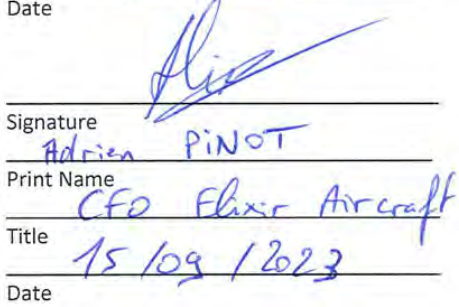 Date
Signature
Adrien PiNOT
Print Name
CFO Elixir Aircraft
Title
15/09/2023
Date